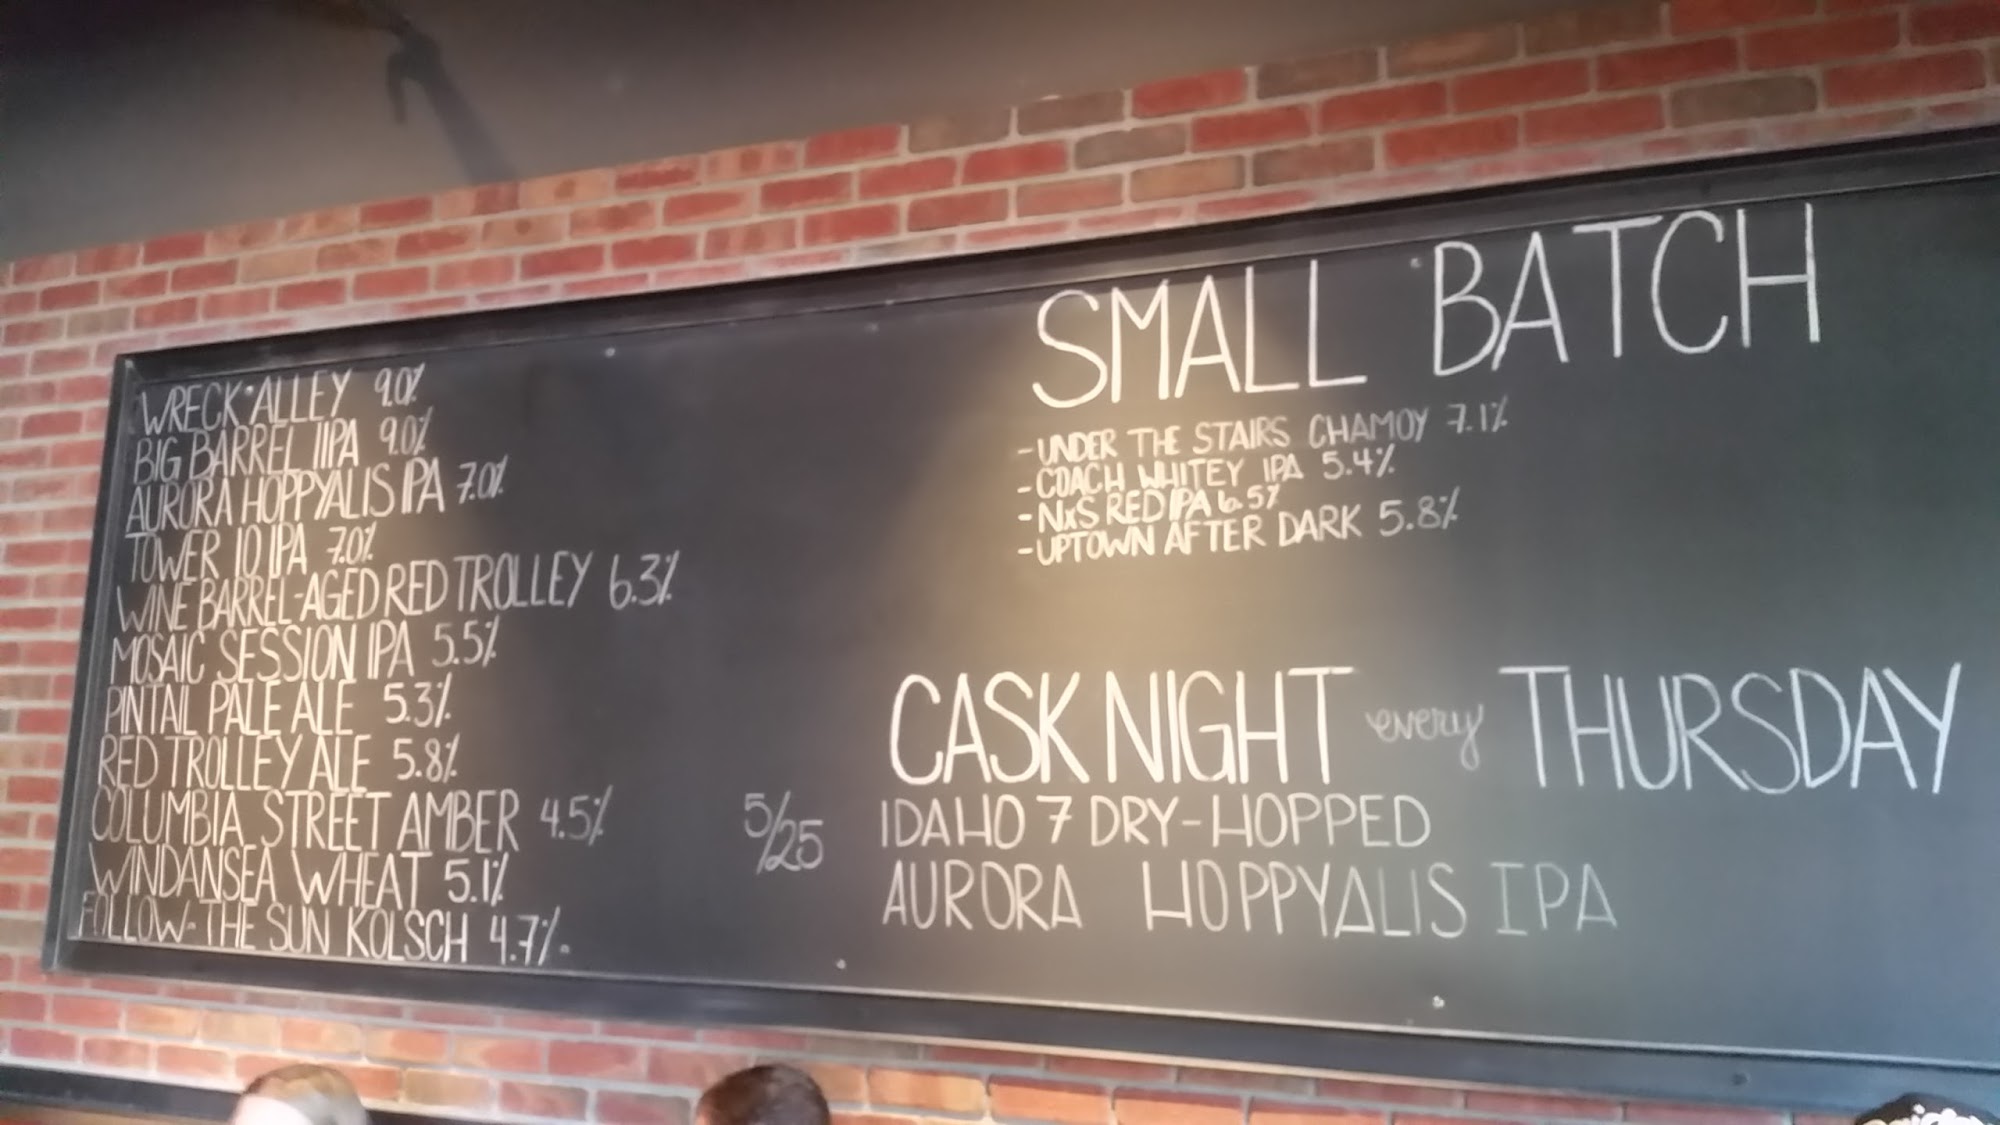 WRECK ALLEY 9.0%
BIG BARREL IIPA 9.0%
AURORA HOPPYALIS IPA 7.0%
TOWER 10 IPA 7.0%
WINE BARREL-AGED RED TROLLEY 6.3%
MOSAIC SESSION IPA 5.5%
PINTAIL PALE ALE 5.3%
RED TROLLEY ALE 5.8%
COLUMBIA STREET AMBER 4.5%
WINDANSEA WHEAT 5.1%
FOLLOW-THE SUN KOLSCH 4.7%
SMALL BATCH
-UNDER THE STAIRS CHAMOY 7.1%
-COACH WHITEY IPA 5.4%
-NxS RED IPA 6.5%
-UPTOWN AFTER DARK 5.8%
CASK NIGHT every THURSDAY
5/25 IDAHO 7 DRY-HOPPED
AURORA HOPPYALIS IPA